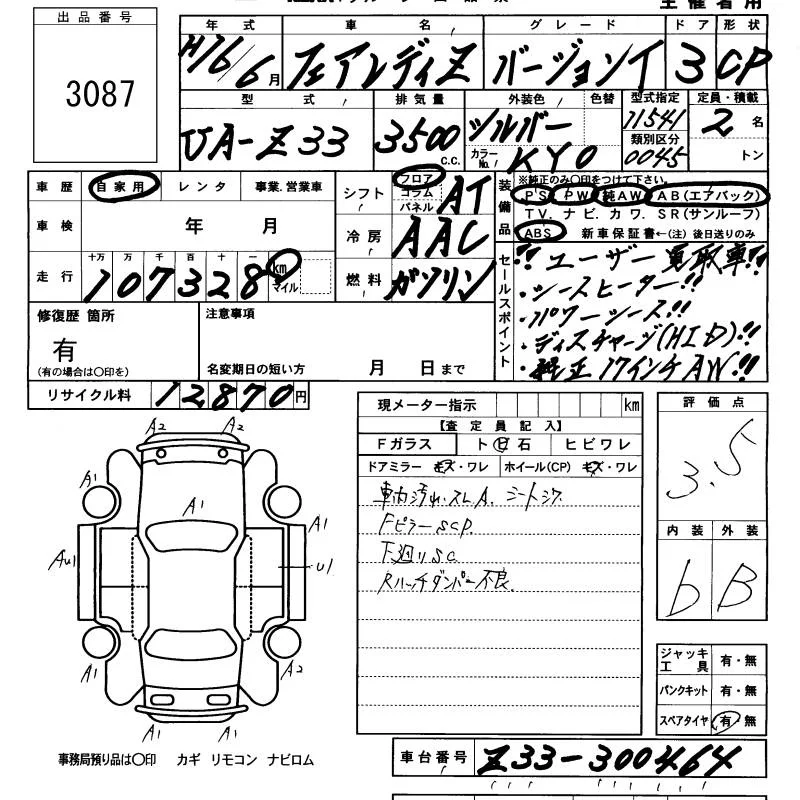 主催者用
出品番号
3087
年式 車名 グレード ドア 形状
H16/6月 フェアレディZ バージョンT 3 CP
型式 排気量 外装色 色替 型式指定 定員・積載
UA-Z33 3500 C.C. シルバー カラーNo. KY0 11541 2名
類別区分
0045 トン
車歴 自家用 レンタ 事業.営業車
シフト フロア コラム パネル AT
装備品 ※純正のみ〇印をつけて下さい。
PS PW 純AW AB(エアバック)
TV. ナビ. カワ. SR(サンルーフ)
ABS 新車保証書←(注) 後日送りのみ
車検 年 月
冷房 AAC
走行 十万 万 千 百 十 一
107328 km マイル
燃料 ガソリン
セールスポイント
!! ユーザー買取車!!
・シースヒーター!!
・パワーシース!!
・ディスチャージ(HID)!!
・純正17インチAW!!
修復歴 箇所
有
(有の場合は〇印を)
注意事項
名変期日の短い方 月 日まで
リサイクル料 12870円
現メーター指示 km
【査定員記入】
Fガラス トビ石 ヒビワレ
ドアミラー キズ・ワレ ホイール(CP) キズ・ワレ
車内汚れ.スレ.A. シートシワ
Fピラーscp.
下廻りsc
Rハッチダンパー不良.
評価点
3.5
内装 外装
b B
A2 A2
A1 A1 A1
Au1 U1
A1 A2
A1 A1
ジャッキ工具 有・無
パンクキット 有・無
スペアタイヤ 有・無
事務局預り品は〇印 カギ リモコン ナビロム
車台番号 Z33-300464